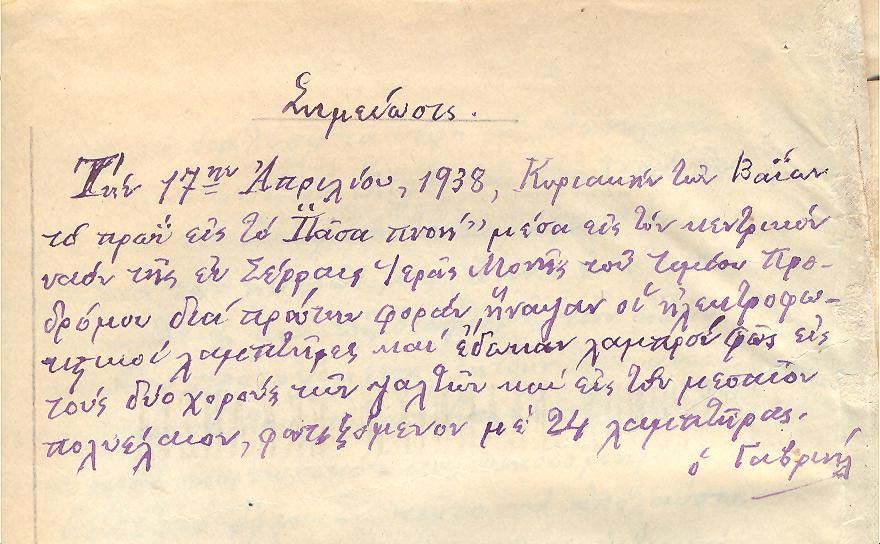 Σημείωσις.
Τήν 17ην Ἀπριλίου, 1938, Κυριακήν τῶν Βαΐων
τό πρωΐ εἰς τό "Πᾶσα πνοή" μέσα εἰς τόν κεντρικόν
ναόν τῆς ἐν Σέρραις Ἱερᾶς Μονῆς τοῦ τιμίου Προ-
δρόμου διά πρώτην φοράν ἤναψαν οἱ ἠλεκτροφω-
τιστικοί λαμπτῆρες καί ἔδωκαν λαμπρόν φῶς εἰς
τούς δύο χορούς τῶν ψαλτῶν καί εἰς τόν μεσαῖον
πολυέλαιον, φωτιζόμενον μέ 24 λαμπτῆρας.
ὁ Γαβριήλ